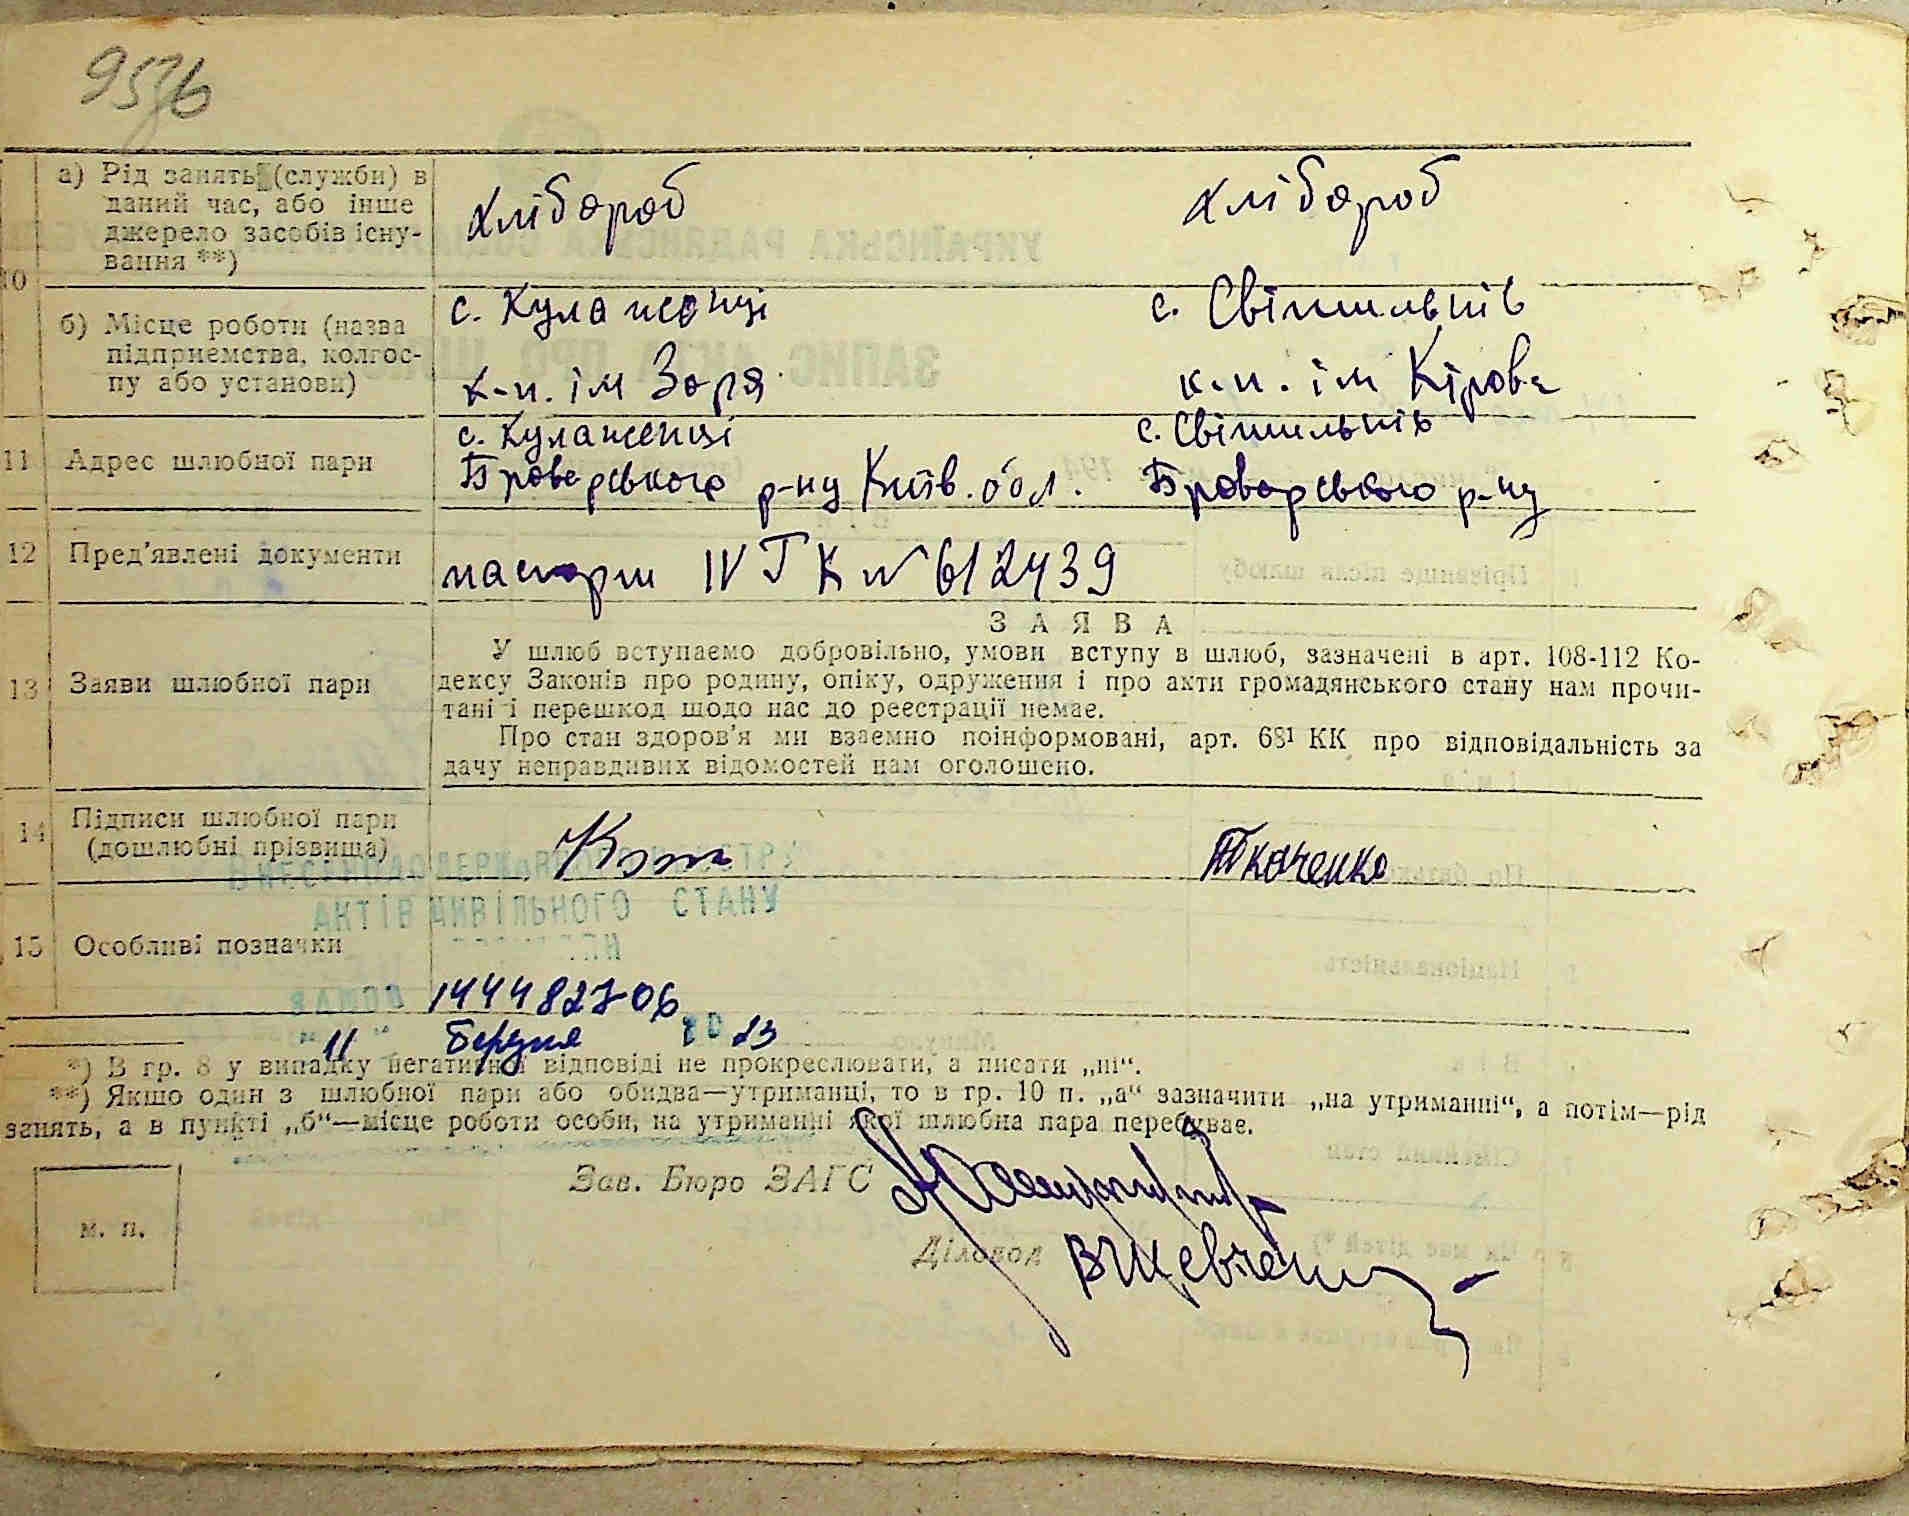 95зб
10
а) Рід занять (служби) в
даний час, або інше
джерело засобів існу-
вання **)
хлібороб
хлібороб
б) Місце роботи (назва
підприємства, колгос-
пу або установи)
с. Кулаженці
к-п. ім Зоря
с. Світильнів
к-п. ім Кірова
11 Адрес шлюбної пари
с. Кулаженці
Броварського р-ну Київ. обл.
с. Світильнів
Броварського р-ну
12 Пред'явлені документи
паспорт IV ГК № 612439
13 Заяви шлюбної пари
ЗАЯВА
У шлюб вступаємо добровільно, умови вступу в шлюб, зазначені в арт. 108-112 Ко-
дексу Законів про родину, опіку, одруження і про акти громадянського стану нам прочи-
тані і перешкод щодо нас до реєстрації немає.
Про стан здоров'я ми взаємно поінформовані, арт. 68¹ КК про відповідальність за
дачу неправдивих відомостей нам оголошено.
14 Підписи шлюбної пари
(дошлюбні прізвища)
Ткаченко
АКТІВ ЦИВІЛЬНОГО СТАНУ
15 Особливі позначки
144482706
11 березня 2023
*) В гр. 8 у випадку негативної відповіді не прокреслювати, а писати „ні“.
**) Якщо один з шлюбної пари або обидва—утриманці, то в гр. 10 п. „а“ зазначити „на утриманні“, а потім—рід
занять, а в пункті „б“—місце роботи особи, на утриманні якої шлюбна пара перебуває.
Зав. Бюро ЗАГС
м. п.
Діловод ВШевченко